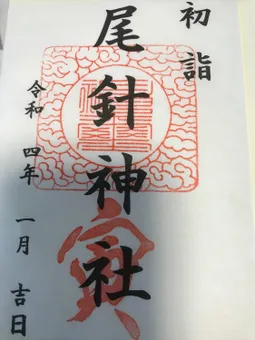 初詣
尾針神社
寅
令和四年
一月吉日